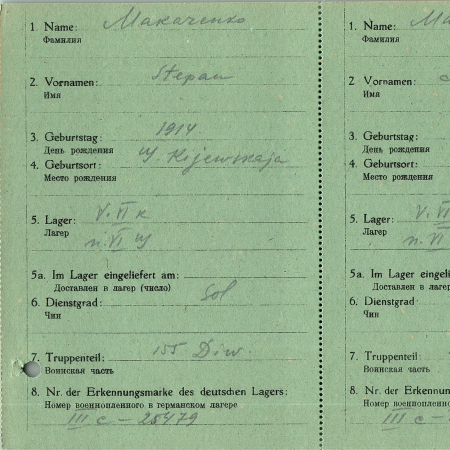 1. Name: Makarenko
Фамилия
2. Vornamen: Stepan
Имя
3. Geburtstag: 1914.
День рождения
4. Geburtsort: Kijewskaja
Место рождения
5. Lager: V. VI K
Лагерь
n. VI
5a. Im Lager eingeliefert am:
Доставлен в лагерь (число)
6. Dienstgrad: Sol
Чин
7. Truppenteil: 155 Diw.
Воинская часть
8. Nr. der Erkennungsmarke des deutschen Lagers:
Номер военнопленного в германском лагере
III c – 25479
1. Name: Ma
Фамилия
2. Vornamen:
Имя
3. Geburtstag:
День рождения
4. Geburtsort:
Место рождения
5. Lager: V. VI
Лагерь
n. VI
5a. Im Lager eingeli
Доставлен в лаге
6. Dienstgrad:
Чин
7. Truppenteil:
Воинская часть
8. Nr. der Erkennun
Номер военноплен
III c –